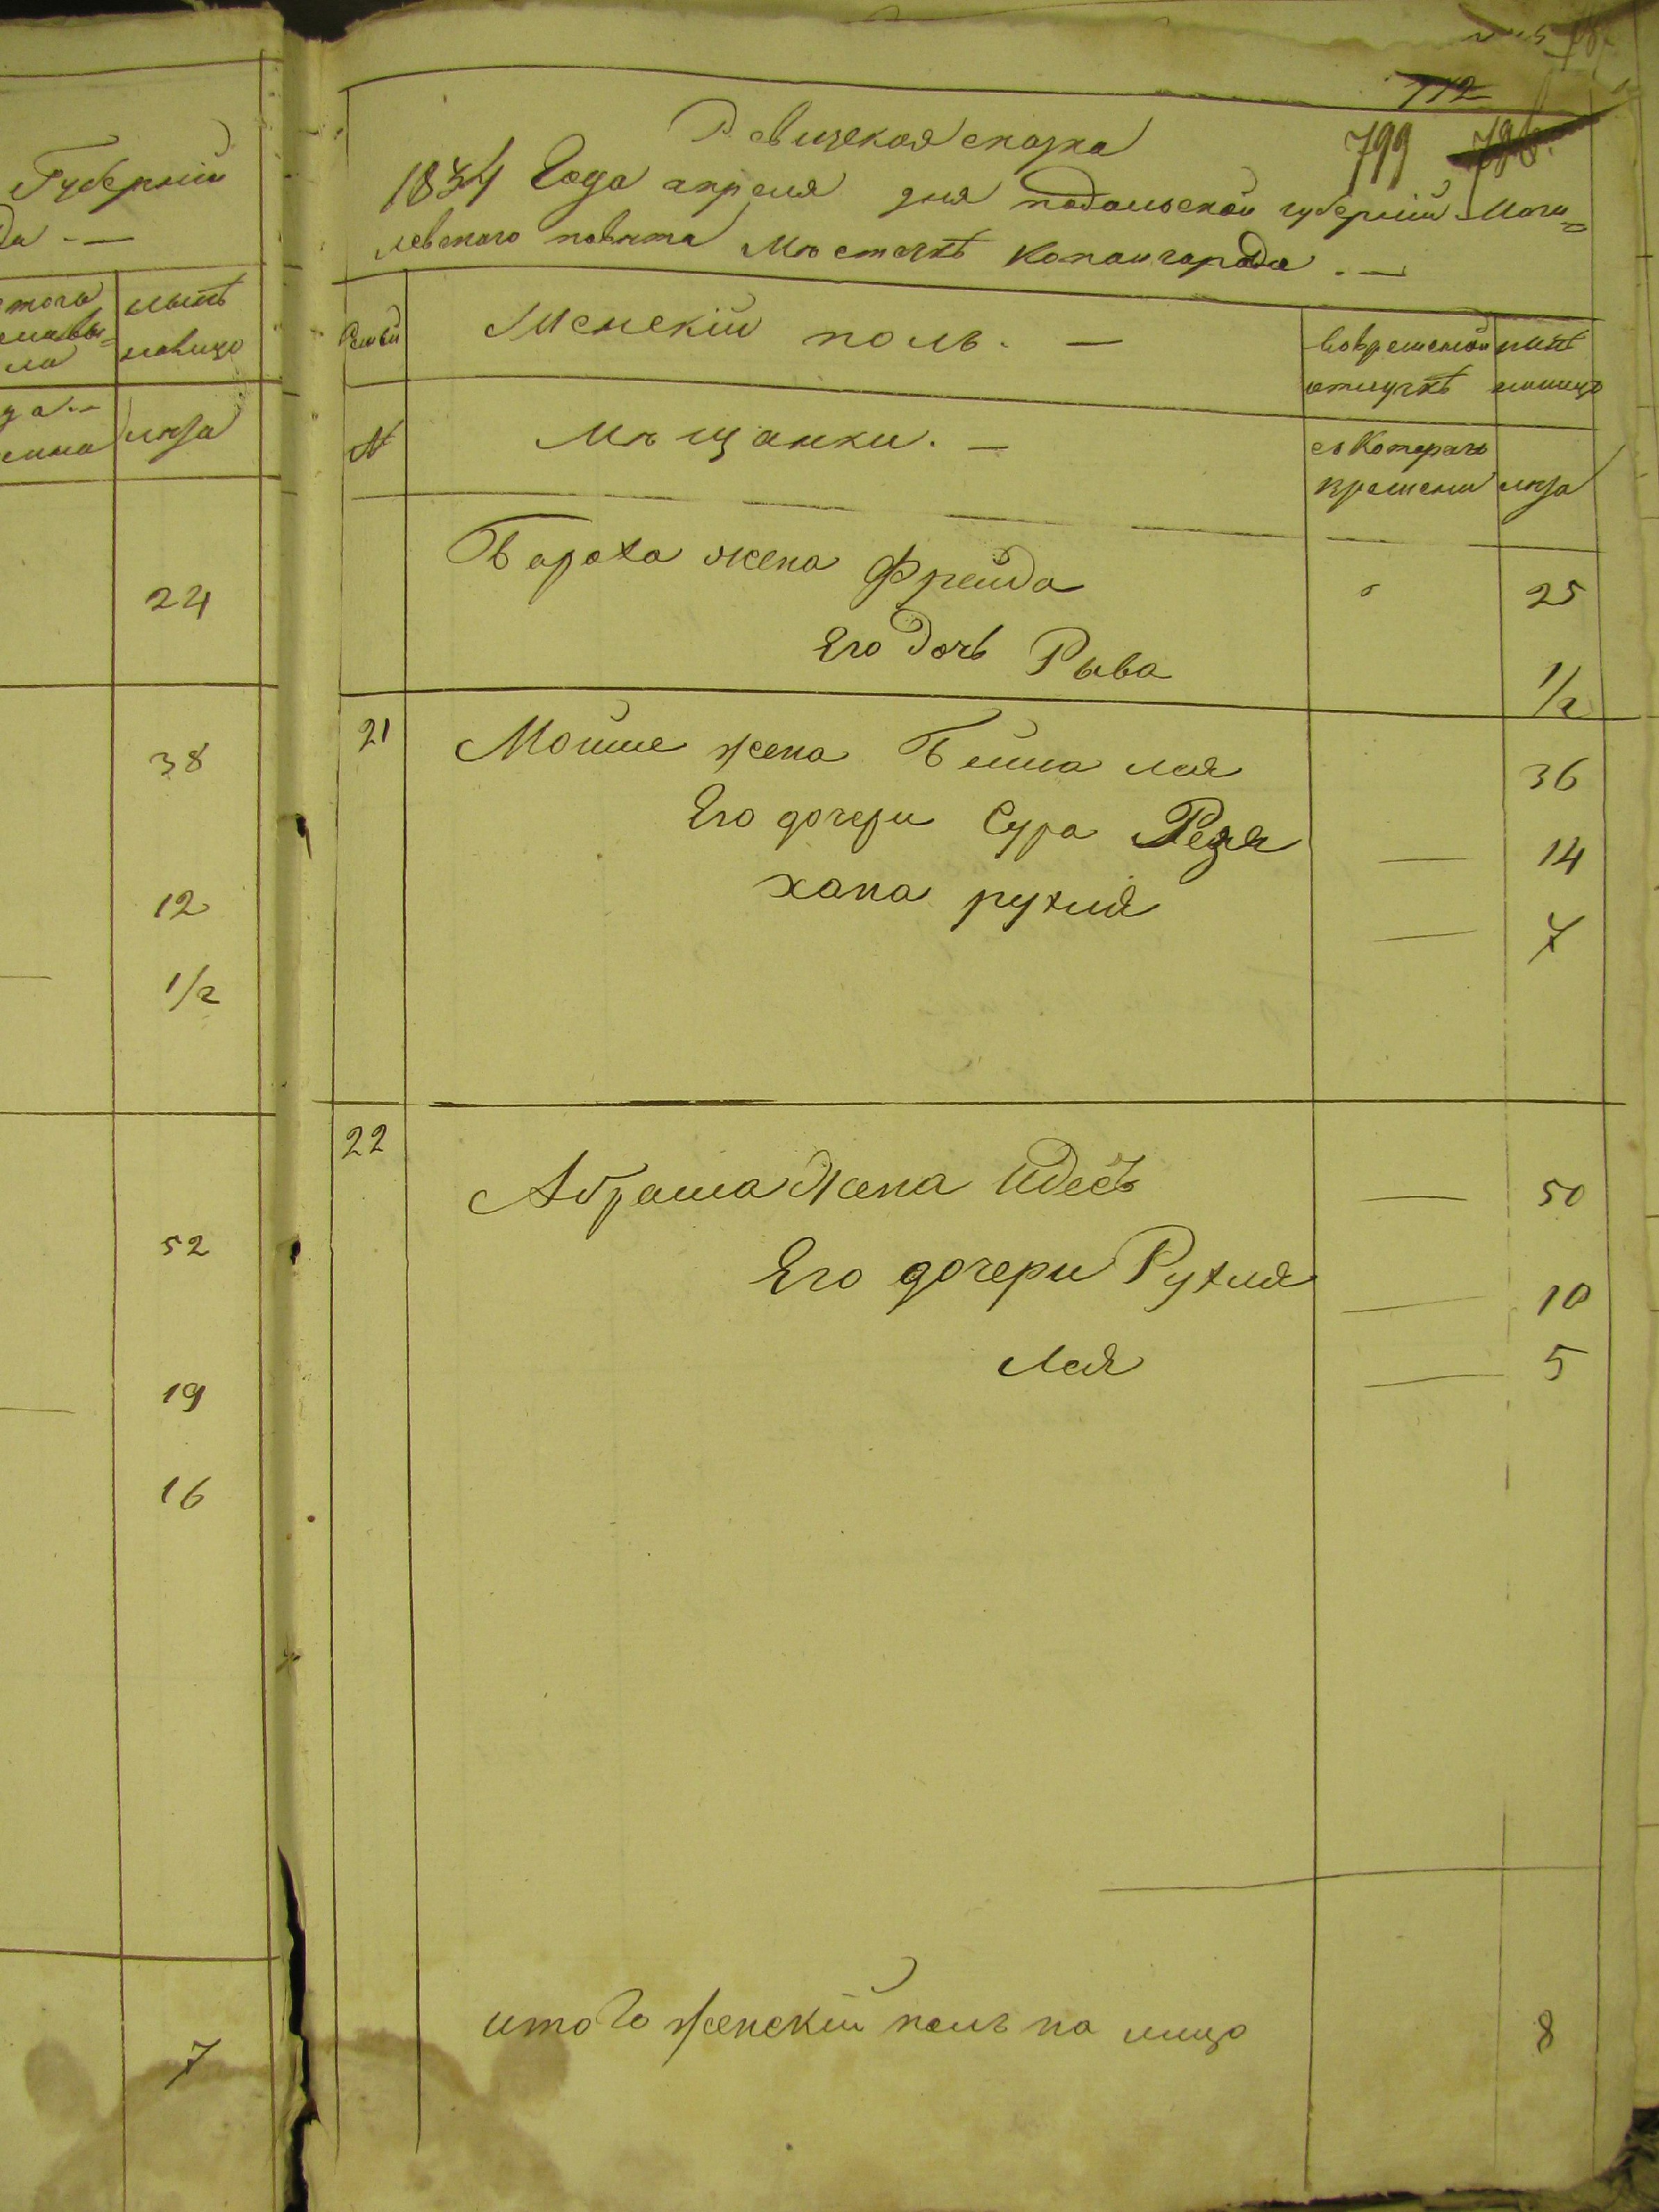 Губерніи
да
нынѣ
налицо
лѣта
24
38
12
1/2
52
19
16
7
112
799 786
Ревизская сказка
1834 Года апреля дня подольской губерніи Моги=
левского повѣта Мѣстечкѣ Копайгорода
Семьи
Женскій полъ. —
вовременной
отлучкѣ
нынѣ
налицо
№
Мѣщанки. —
съ Котораго
времени
лѣта
Бароха жена Фрейда 25
Его дочь Рыва 1/2
21 Мошке жена Бейла лея 36
Его дочери Сура Резя — 14
хана рухля — 7
22
Абрама Жена Идесъ — 50
Его дочери Рухля — 10
Лея — 5
итого женскій полъ на лицо 8